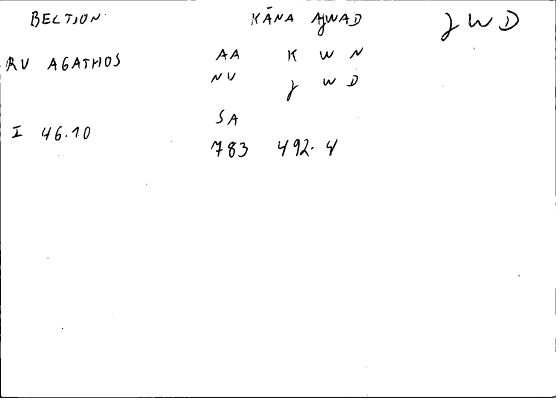 BELTION KĀNA AJWAD JWD
RV AGATHOS AA K W N
NV J W D
SA
I 46.10 783 492.4